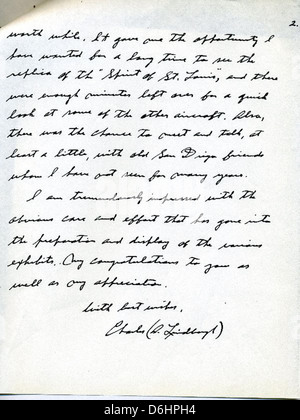 2.
worth while. It gave me the opportunity I
have wanted for a long time to see the
replica of the "Spirit of St. Louis", and there
were enough minutes left over for a quick
look at some of the other aircraft. Also,
there was the chance to meet and talk, at
least a little, with old San Diego friends
whom I have not seen for many years.
I am tremendously impressed with the
obvious care and effort that has gone into
the preparation and display of the various
exhibits. My congratulations to you as
well as my appreciation.
With best wishes,
Charles (A. Lindbergh)
a
alamy
Image ID: D6HPH4
www.alamy.com